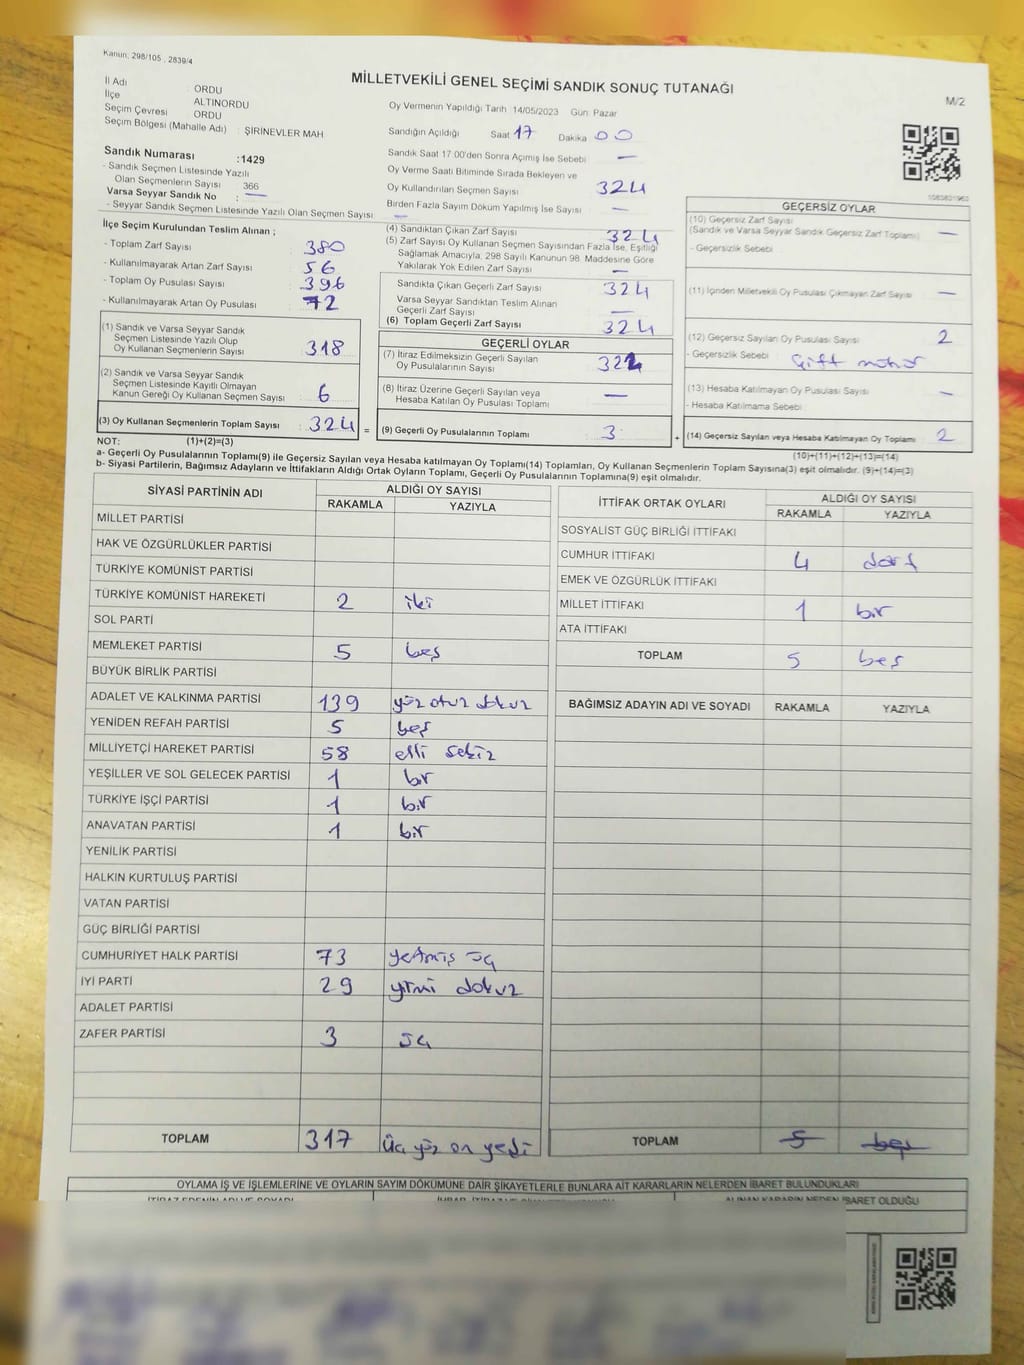 Kanun, 298/105 , 2839/4
MİLLETVEKİLİ GENEL SEÇİMİ SANDIK SONUÇ TUTANAĞI
M/2
İl Adı : ORDU
İlçe ALTINORDU
Seçim Çevresi ORDU
Seçim Bölgesi (Mahalle Adı) : ŞİRİNEVLER MAH
Sandık Numarası :1429
- Sandık Seçmen Listesinde Yazılı
Olan Seçmenlerin Sayısı 366
Varsa Seyyar Sandık No : —
- Seyyar Sandık Seçmen Listesinde Yazılı Olan Seçmen Sayısı : —
Oy Vermenin Yapıldığı Tarih 14/05/2023 Gün: Pazar
Sandığın Açıldığı Saat 17 Dakika 00
Sandık Saat 17:00'den Sonra Açılmış İse Sebebi —
Oy Verme Saati Bitiminde Sırada Bekleyen ve
Oy Kullandırılan Seçmen Sayısı 324
Birden Fazla Sayım Döküm Yapılmış İse Sayısı —
İlçe Seçim Kurulundan Teslim Alınan ;
- Toplam Zarf Sayısı : 380
- Kullanılmayarak Artan Zarf Sayısı : 56
- Toplam Oy Pusulası Sayısı : 396
- Kullanılmayarak Artan Oy Pusulası : 72
(1) Sandık ve Varsa Seyyar Sandık
Seçmen Listesinde Yazılı Olup
Oy Kullanan Seçmenlerin Sayısı : 318
(2) Sandık ve Varsa Seyyar Sandık
Seçmen Listesinde Kayıtlı Olmayan
Kanun Gereği Oy Kullanan Seçmen Sayısı : 6
(3) Oy Kullanan Seçmenlerin Toplam Sayısı : 324 =
(4) Sandıktan Çıkan Zarf Sayısı 324
(5) Zarf Sayısı Oy Kullanan Seçmen Sayısından Fazla İse, Eşitliği
Sağlamak Amacıyla, 298 Sayılı Kanunun 98. Maddesine Göre
Yakılarak Yok Edilen Zarf Sayısı —
Sandıkta Çıkan Geçerli Zarf Sayısı 324
Varsa Seyyar Sandıktan Teslim Alınan
Geçerli Zarf Sayısı —
(6) Toplam Geçerli Zarf Sayısı 324
GEÇERLİ OYLAR
(7) İtiraz Edilmeksizin Geçerli Sayılan
Oy Pusulalarının Sayısı 322
(8) İtiraz Üzerine Geçerli Sayılan veya
Hesaba Katılan Oy Pusulası Toplamı —
(9) Geçerli Oy Pusulalarının Toplamı 3 +
1083831963
GEÇERSİZ OYLAR
(10) Geçersiz Zarf Sayısı
(Sandık ve Varsa Seyyar Sandık Geçersiz Zarf Toplamı) —
- Geçersizlik Sebebi
(11) İçinden Milletvekili Oy Pusulası Çıkmayan Zarf Sayısı —
(12) Geçersiz Sayılan Oy Pusulası Sayısı 2
- Geçersizlik Sebebi : Çift mühür
(13) Hesaba Katılmayan Oy Pusulası Sayısı —
- Hesaba Katılmama Sebebi
(14) Geçersiz Sayılan veya Hesaba Katılmayan Oy Toplamı 2
NOT: (1)+(2)=(3) (10)+(11)+(12)+(13)=(14)
a- Geçerli Oy Pusulalarının Toplamı(9) ile Geçersiz Sayılan veya Hesaba katılmayan Oy Toplamı(14) Toplamları, Oy Kullanan Seçmenlerin Toplam Sayısına(3) eşit olmalıdır. (9)+(14)=(3)
b- Siyasi Partilerin, Bağımsız Adayların ve İttifakların Aldığı Ortak Oyların Toplamı, Geçerli Oy Pusulalarının Toplamına(9) eşit olmalıdır.
SİYASİ PARTİNİN ADI ALDIĞI OY SAYISI
RAKAMLA YAZIYLA
MİLLET PARTİSİ
HAK VE ÖZGÜRLÜKLER PARTİSİ
TÜRKİYE KOMÜNİST PARTİSİ
TÜRKİYE KOMÜNİST HAREKETİ 2 iki
SOL PARTİ
MEMLEKET PARTİSİ 5 beş
BÜYÜK BİRLİK PARTİSİ
ADALET VE KALKINMA PARTİSİ 139 yüz otuz dokuz
YENİDEN REFAH PARTİSİ 5 beş
MİLLİYETÇİ HAREKET PARTİSİ 58 elli sekiz
YEŞİLLER VE SOL GELECEK PARTİSİ 1 bir
TÜRKİYE İŞÇİ PARTİSİ 1 bir
ANAVATAN PARTİSİ 1 bir
YENİLİK PARTİSİ
HALKIN KURTULUŞ PARTİSİ
VATAN PARTİSİ
GÜÇ BİRLİĞİ PARTİSİ
CUMHURİYET HALK PARTİSİ 73 yetmiş üç
İYİ PARTİ 29 yirmi dokuz
ADALET PARTİSİ
ZAFER PARTİSİ 3 üç
TOPLAM 317 üç yüz on yedi
İTTİFAK ORTAK OYLARI ALDIĞI OY SAYISI
RAKAMLA YAZIYLA
SOSYALİST GÜÇ BİRLİĞİ İTTİFAKI
CUMHUR İTTİFAKI 4 dört
EMEK VE ÖZGÜRLÜK İTTİFAKI
MİLLET İTTİFAKI 1 bir
ATA İTTİFAKI
TOPLAM 5 beş
BAĞIMSIZ ADAYIN ADI VE SOYADI RAKAMLA YAZIYLA
TOPLAM 5 beş
OYLAMA İŞ VE İŞLEMLERİNE VE OYLARIN SAYIM DÖKÜMÜNE DAİR ŞİKAYETLERLE BUNLARA AİT KARARLARIN NELERDEN İBARET BULUNDUKLARI
İTİRAZ EDENİN ADI VE SOYADI ALINAN KARARIN NEDEN İBARET OLDUĞU